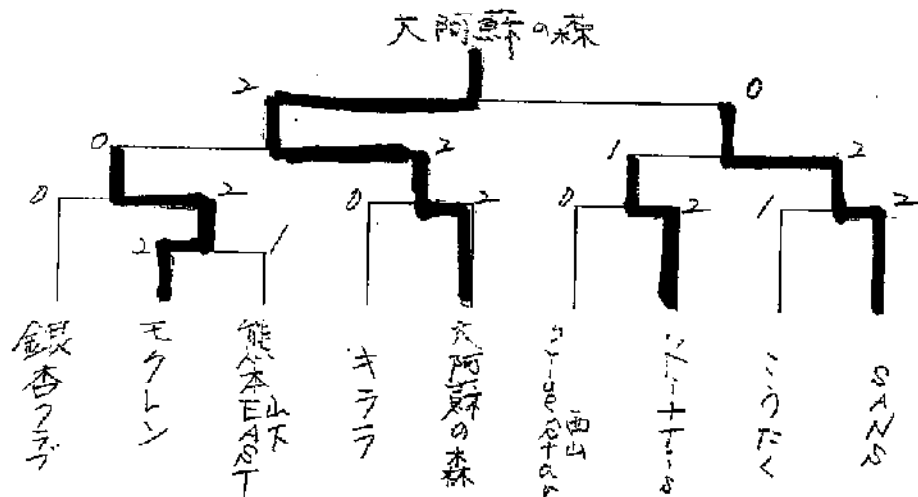 大阿蘇の森
2 0
0 2 1 2
0 2 0 2 0 2 1 2
2 1
銀杏クラブ
モクレン
熊本EAST
山下
キララ
大阿蘇の森
Blue Star
西山
こうたく
SANS